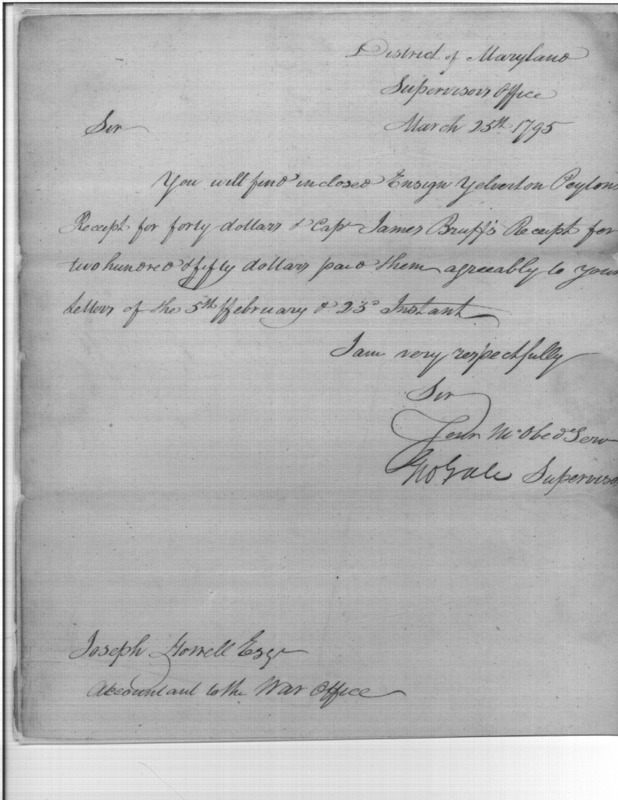 District of Maryland
Supervisors Office
March 25th 1795
Sir
You will find inclosed Ensign Yelverton Peytons
Receipt for forty dollars & Capt James Bruff's Receipt for
two hundred & fifty dollars paid them agreeably to your
Letters of the 5th February & 23d Instant
I am very respectfully
Sir
Your Mo Obed Serv
Geo Gale Superviso
Joseph Howell Esqr
Accountant to the War Office